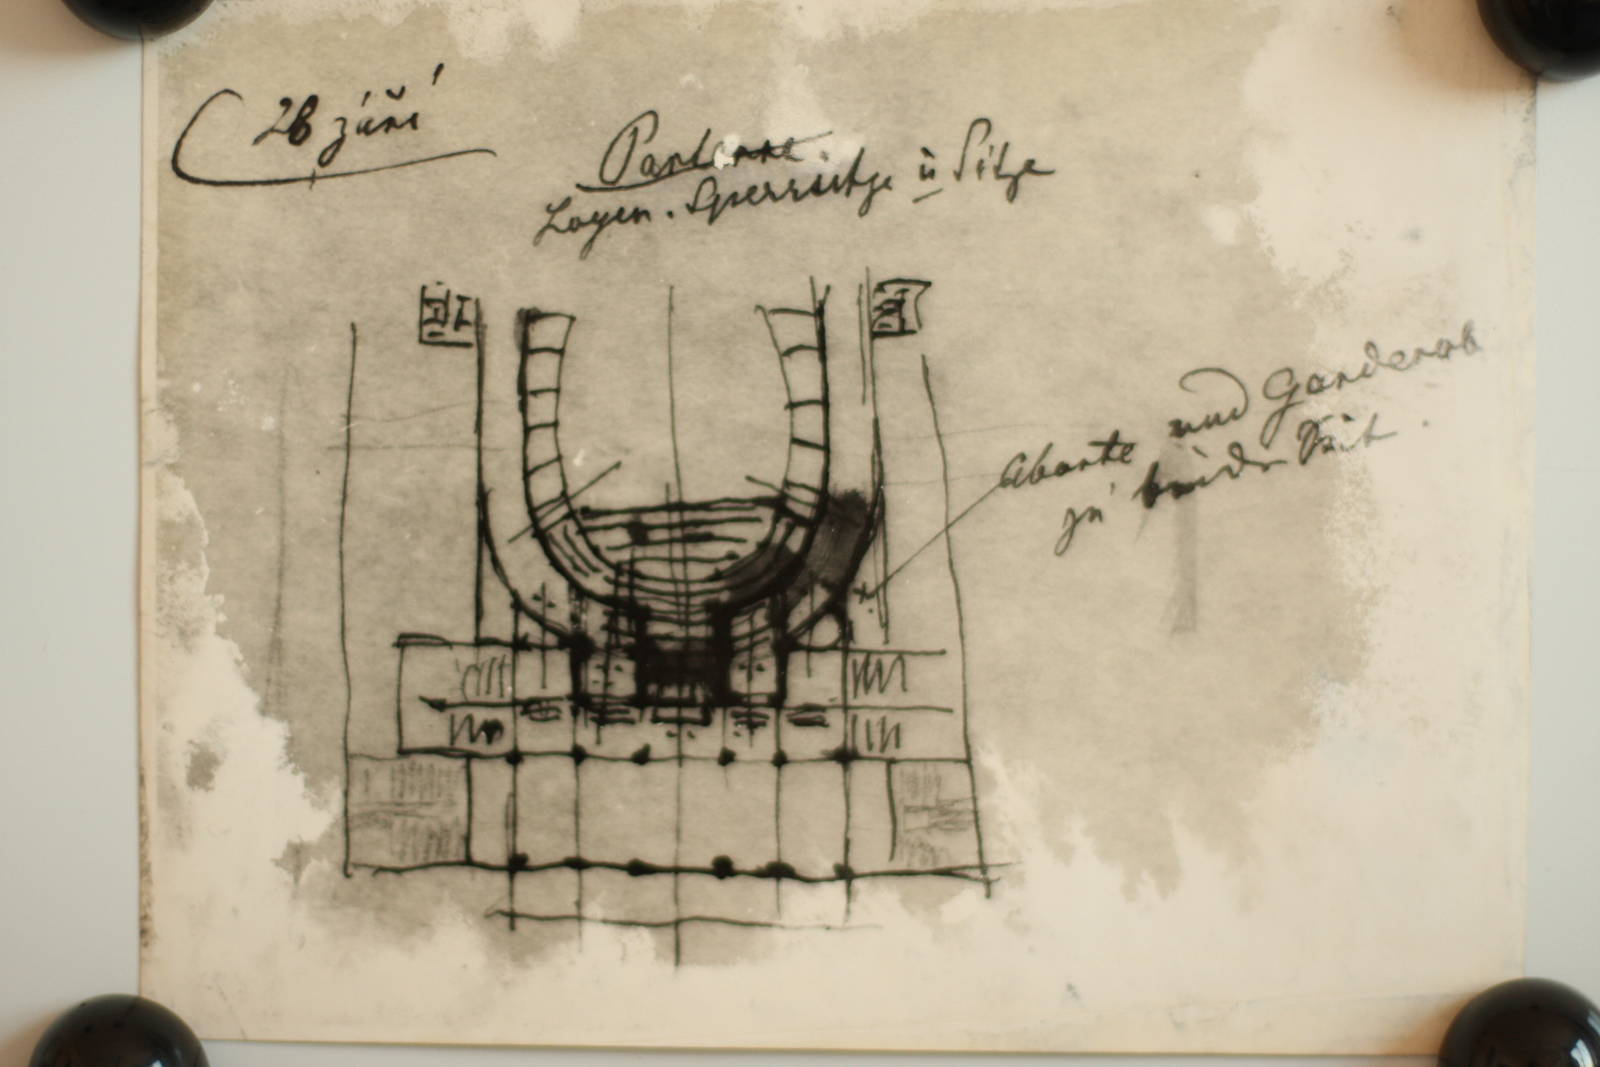 28 září
Parterre.
Logen. Sperrsitze ù Sitze
Aborte und Garderob
zù beider Seit.